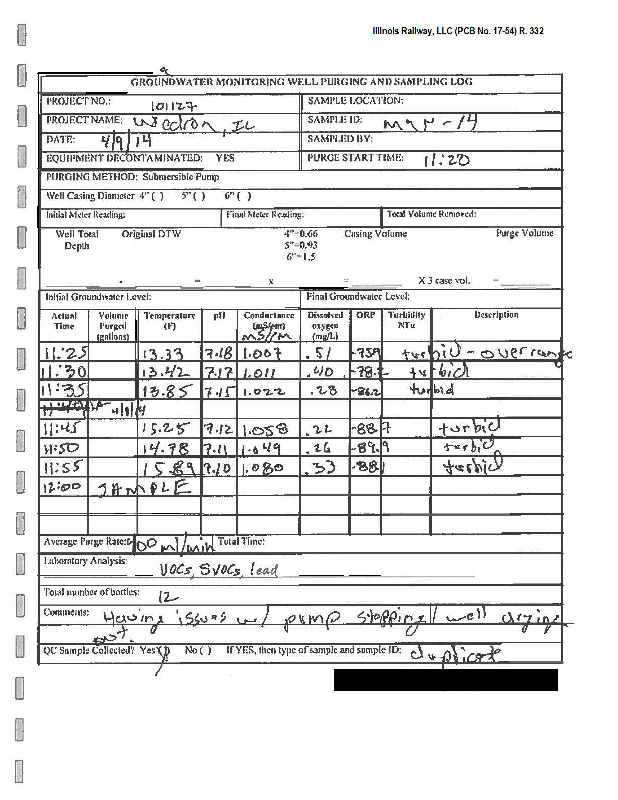 Illinois Railway, LLC (PCB No. 17-54) R. 332
GROUNDWATER MONITORING WELL PURGING AND SAMPLING LOG
PROJECT NO.: 101127 SAMPLE LOCATION:
PROJECT NAME: Wedron, IL SAMPLE ID: MW-14
DATE: 4/9/14 SAMPLED BY:
EQUIPMENT DECONTAMINATED: YES PURGE START TIME: 11:20
PURGING METHOD: Submersible Pump
Well Casing Diameter 4" ( ) 5" ( ) 6" ( )
Initial Meter Reading: Final Meter Reading: Total Volume Removed:
Well Total Original DTW 4"=0.66 Casing Volume Purge Volume
Depth 5"=0.93
6"=1.5
- = x = X 3 case vol. =
Initial Groundwater Level: Final Groundwater Level:
Actual Volume Temperature pH Conductance Dissolved ORP Turbidity Description
Time Purged (F) (mS/cm) oxygen NTu
(gallons) (mg/L)
11:25 13.33 7.18 1.007 .51 turbid - over range
11:30 13.42 7.17 1.011 .40 turbid
11:35 13.85 7.15 1.022 .28 -86.2 turbid
4/9/14
11:45 15.25 7.12 1.058 .22 -88.7 turbid
11:50 14.78 7.11 1.049 .26 -89.9 turbid
11:55 15.89 7.10 1.080 .33 turbid
12:00 SAMPLE
Average Purge Rate: 100 ml/min Total Time:
Laboratory Analysis: VOCs, SVOCs, lead
Total number of bottles: 12
Comments: Having issues w/ pump stopping/ well drying
out.
QC Sample Collected? Yes ( ) No ( ) If YES, then type of sample and sample ID: duplicate